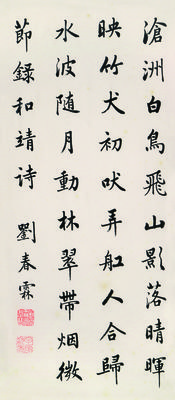 滄洲白鳥飛山影落晴暉
映竹犬初吠弄舡人合歸
水波随月動林翠帶烟微
節録和靖诗
劉春霖